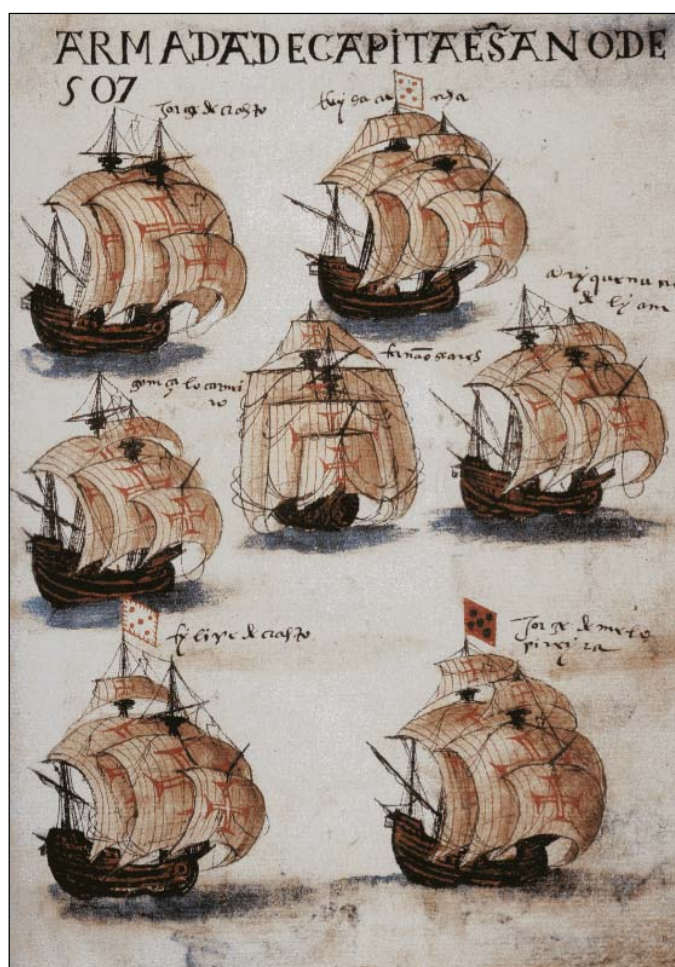 ARMADA DE CAPITAẼS ANO DE
507
Jorge de crasto
Ruy da cu nha
de lyam
fernão soares
gomçalo carnei
ro
fylipe de crasto
Jorge de melo
pireira